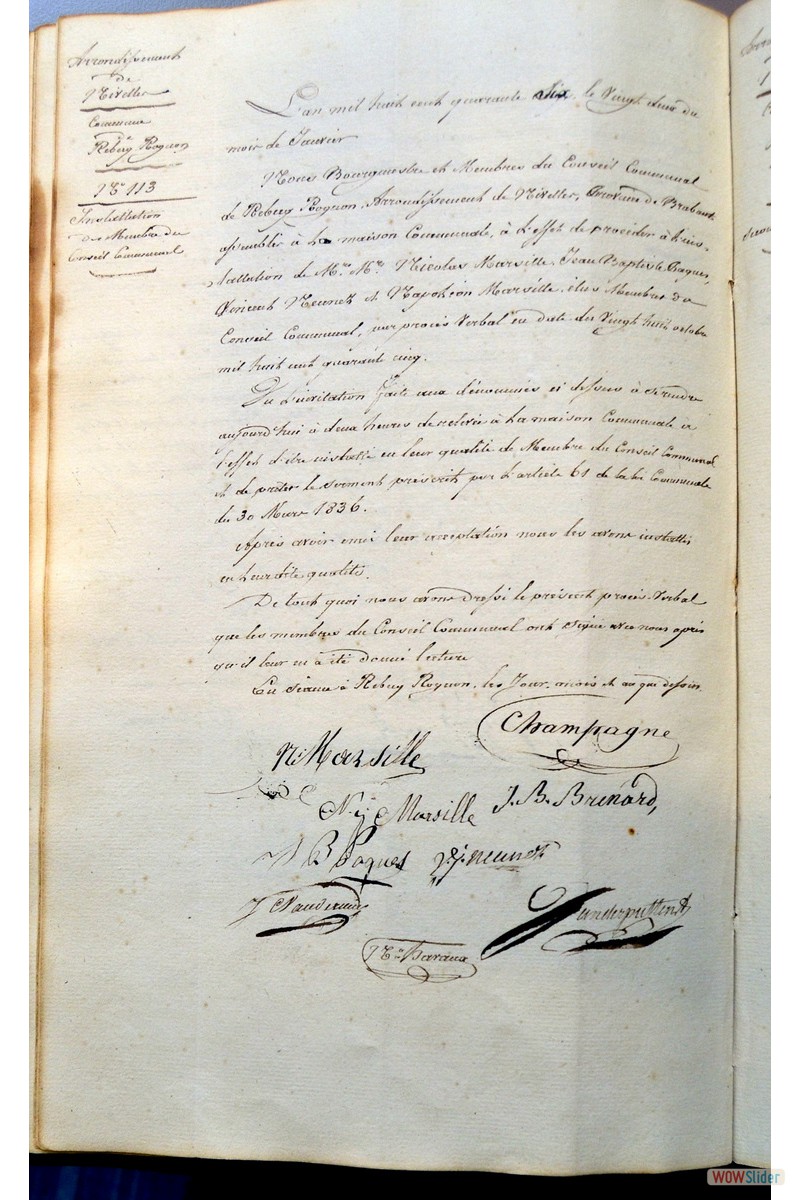 Arrondissement
de
Nivelles
Commune
de
Rebecq Rognon
N° 113
Installation
des Membre du
Conseil Communal
L'an mil huit cent quarante Six, le Vingt deux du
mois de Janvier
Nous Bourgmestre et Membres du Conseil Communal
de Rebecq Rognon, Arrondissement de Nivelles, Province de Brabant
assemblés à la maison Communale, à l'effet de procéder à l'ins-
tallation de M.rs M.rs Nicolas Marsille, Jean Baptiste Paques,
Vincent Neunez et Napoléon Marsille, élus Membres du
Conseil Communal, par procès Verbal en date du Vingt huit octobre
mil huit cent quarante cinq.
Vu l'invitation faite aux dénommés ci dessus à se rendre
aujourd'hui à deux heures de relevée à la maison Communale à
l'effet d'être installé en leur qualité de Membre du Conseil Communal
et de prêter le serment préscrit par l'article 61 de la loi Communale
du 30 Mars 1836.
Après avoir émis leur acceptation nous les avons installés
en leur dite qualité.
De tout quoi nous avons dressé le présent procès-Verbal
que les membres du Conseil Communal ont signé avec nous après
qu'il leur en a été donné lecture
En séance à Rebecq Rognon, les Jour, mois et an que dessus.
Champagne
N: Marsille
N. Marsille J. B. Brenard,
J B Paques V. j. neunez
Vanderputten
WOWSlider